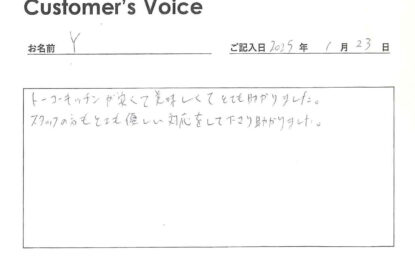 Customer's Voice
お名前 Y ご記入日 2025 年 1 月 23 日
トーコーキッチンが安くて美味しくてとても助かりました。
スタッフの方もとても優しい対応をして下さり助かりました。